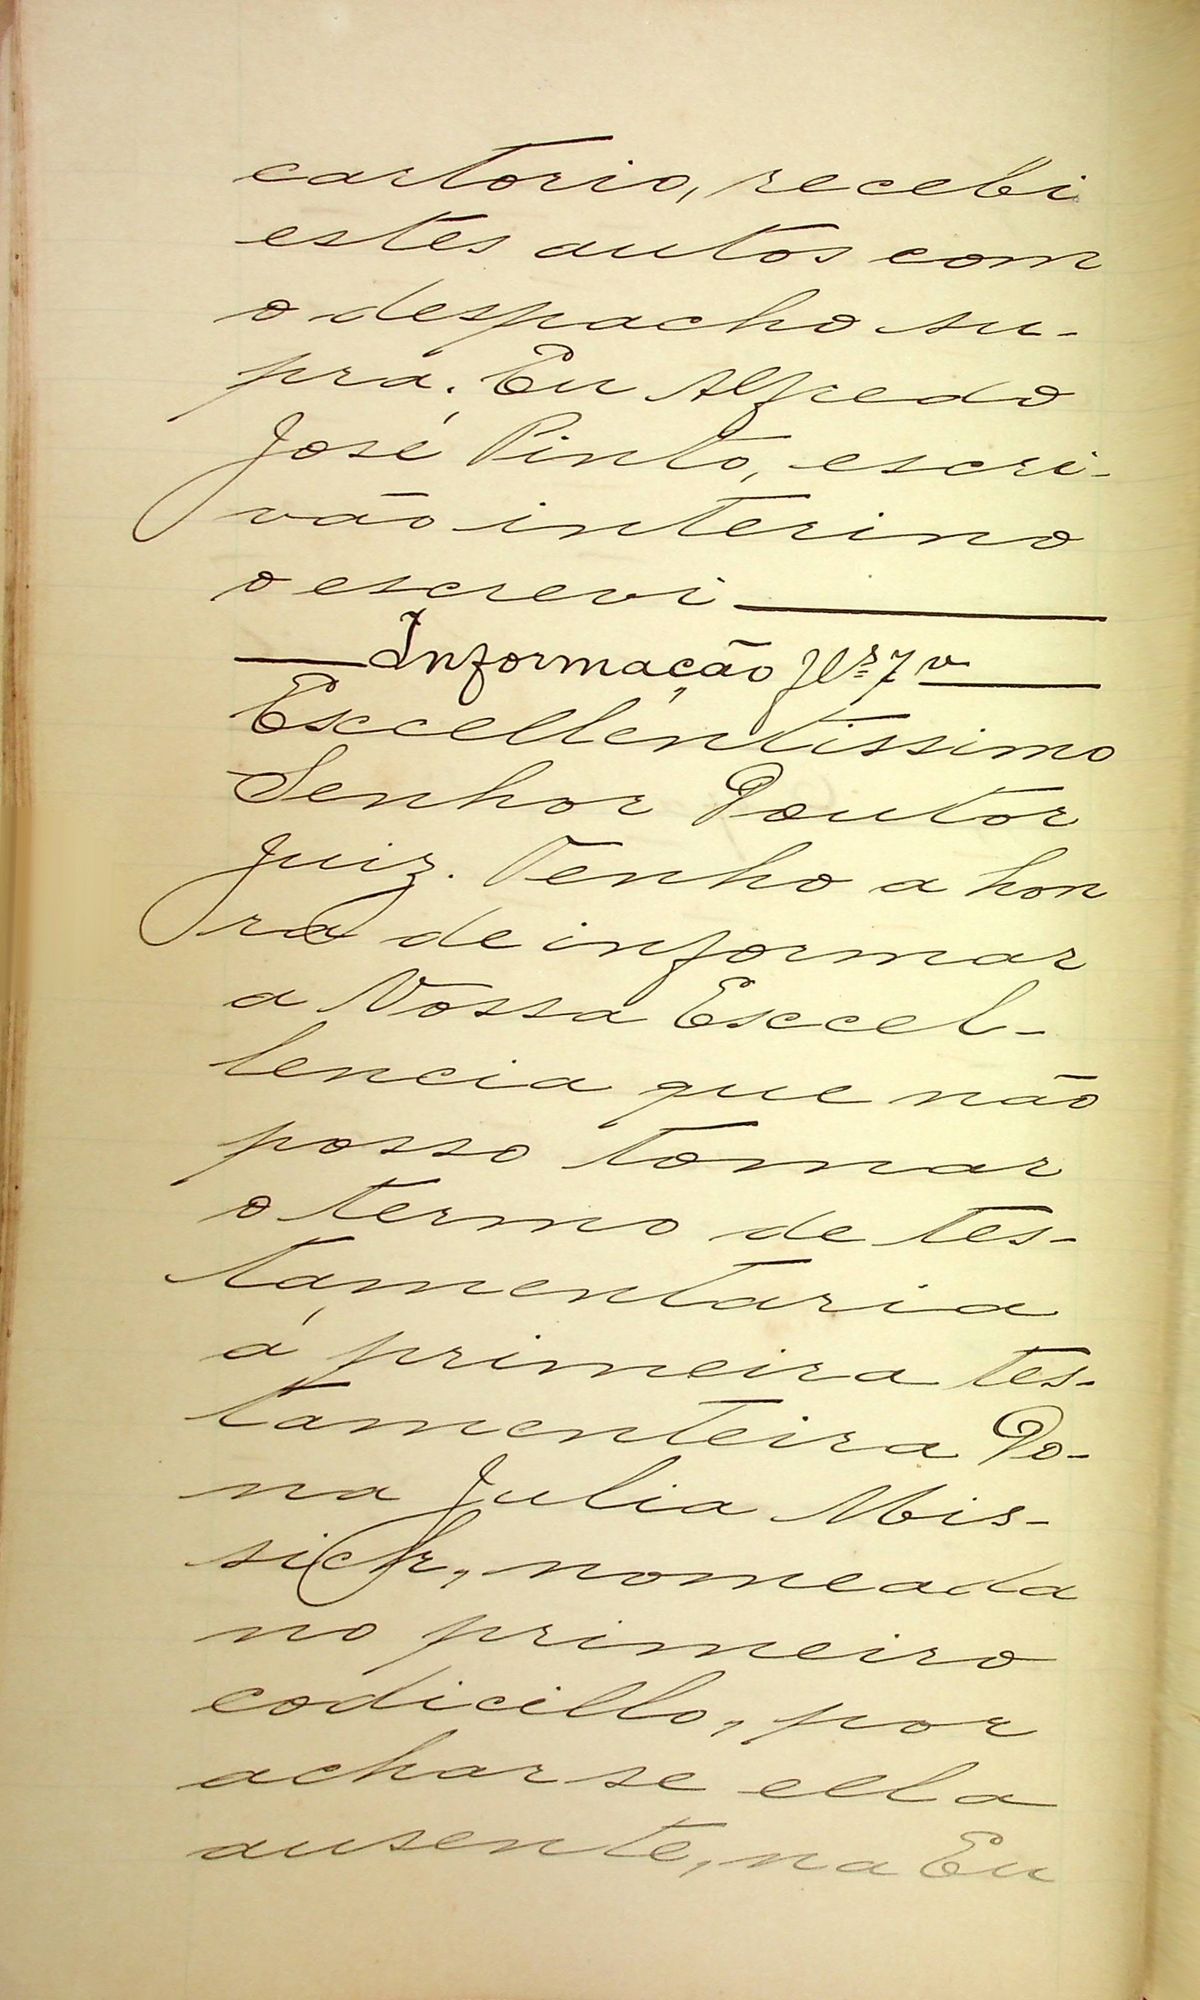 cartorio, recebi
estes autos com
o despacho su-
pra. Eu Alfredo
José Pinto, escri-
vão interino
o escrevi
Informação fls 7 v
Excellentissimo
Senhor Doutor
Juiz. Tenho a hon
ra de informar
a Vossa Excel-
lencia que não
posso tomar
o termo de tes-
tamentaria
á primeira tes-
tamenteira Do-
na Julia Mis-
sick, nomeada
no primeiro
codicillo, por
achar se ella
ausente, na Eu